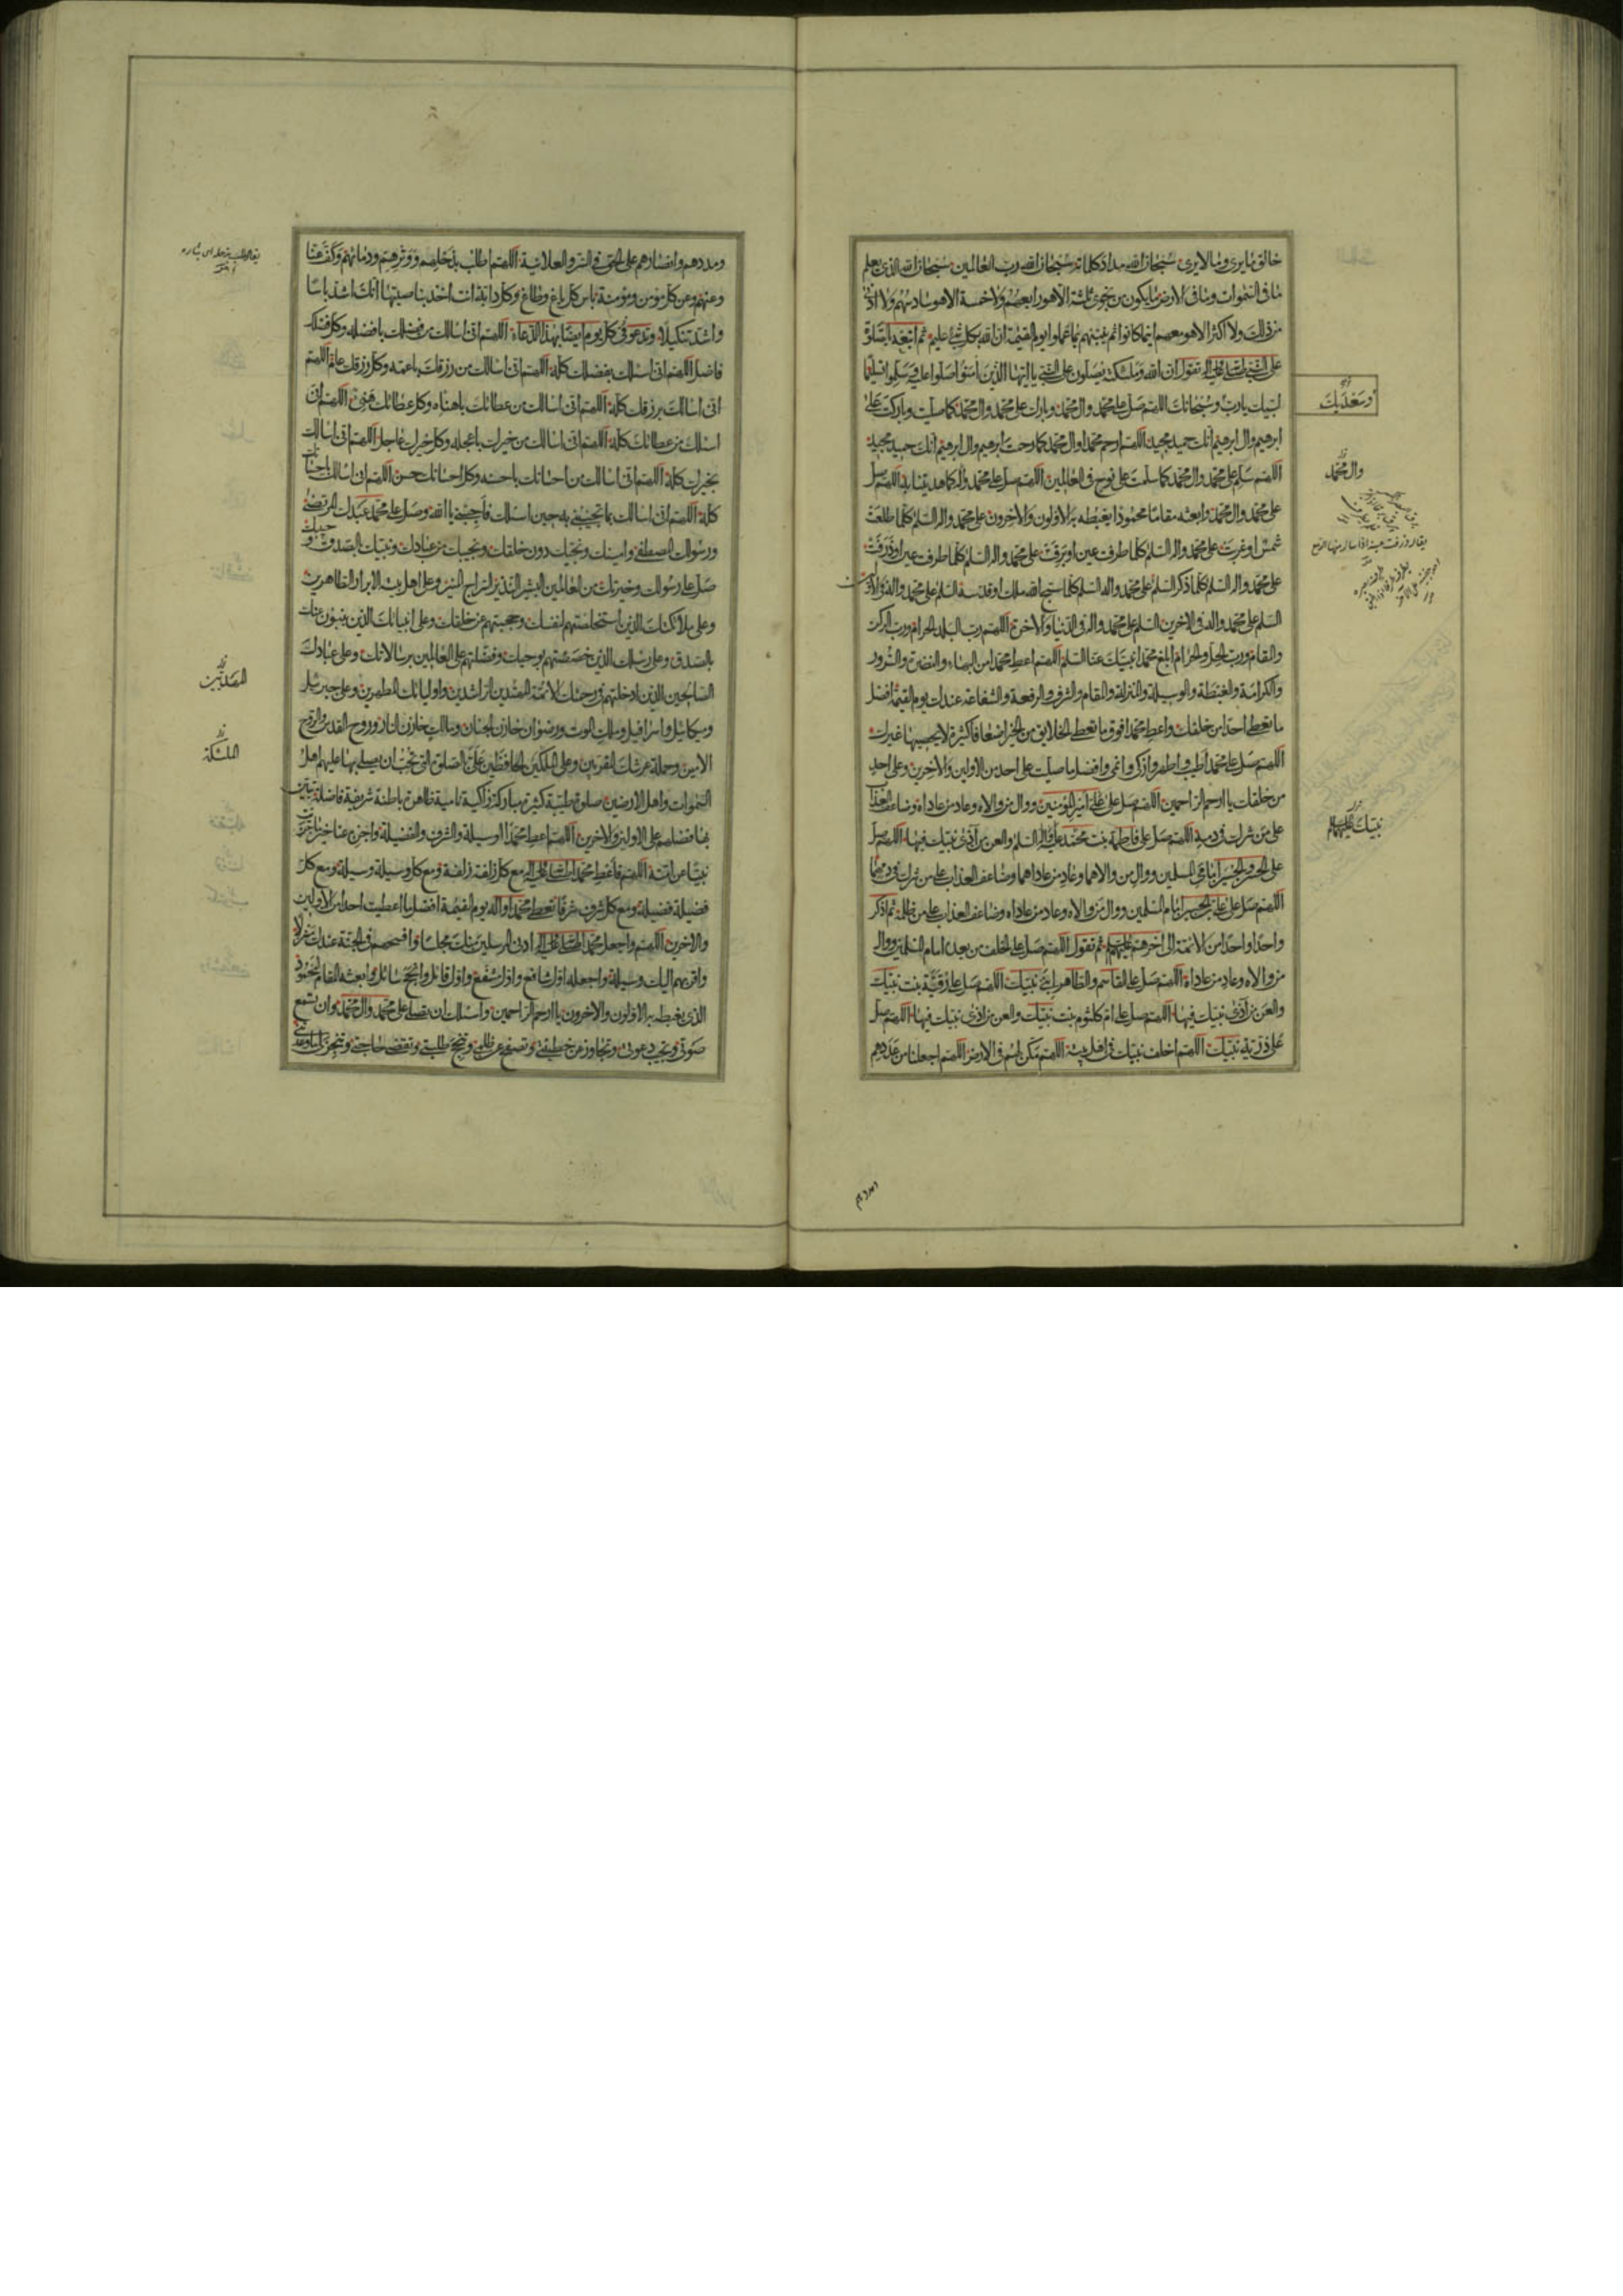 خالق ما يرى وما لا يرى سبحان الله مداد كلماته سبحان الله رب العالمين سبحان الله الذي يعلم
ما في السموات وما في الارض ما يكون من نجوى ثلثة الا هو رابعهم ولا خمسة الا هو سادسهم ولا ادنى
من ذلك ولا اكثر الا هو معهم اينما كانوا ثم ينبئهم بما عملوا يوم القيمة ان الله بكل شئ عليم ثم
على النبي صلى الله عليه واله تقول ان الله وملئكته يصلون على النبي يا ايها الذين امنوا صلوا عليه وسلموا تسليما
لبيك يا رب وسبحانك اللهم صل على محمد وال محمد وبارك على محمد وال محمد كما صليت وباركت على
ابرهيم وال ابرهيم انك حميد مجيد اللهم ارحم محمدا وال محمد كما رحمت ابرهيم وال ابرهيم انك حميد مجيد
اللهم سلم على محمد وال محمد كما سلمت على نوح في العالمين اللهم صل على محمد واله كما هديتنا به اللهم صل
على محمد وال محمد وابعثه مقاما محمودا يغبطه به الاولون والاخرون على محمد واله السلم كلما طلعت
شمس او غربت على محمد واله السلم كلما طرفت عين او برقت على محمد واله السلم كلما طرفت عين او ذرفت
على محمد واله السلم كلما ذكر السلم على محمد واله السلم كلما سبح الله ملك او قدسه السلم على محمد واله في الاولين
السلم على محمد واله في الاخرين السلم على محمد واله في الدنيا والاخرة اللهم رب البلد الحرام ورب الركن
والمقام ورب الحل والحرام ابلغ محمدا نبيك عنا السلم اللهم اعط محمدا من البهاء والنضرة والسرور
والكرامة والغبطة والوسيلة والمنزلة والمقام والشرف والرفعة والشفاعة عندك يوم القيمة افضل
ما تعطي احدا من خلقك واعط محمدا فوق ما تعطي الخلايق من الخير اضعافا كثيرة لا يحصيها غيرك
اللهم صل على محمد اطيب واطهر وازكى وانمى وافضل ما صليت على احد من الاولين والاخرين وعلى احد
من خلقك يا ارحم الراحمين اللهم صل على علي امير المؤمنين ووال من والاه وعاد من عاداه وضاعف العذاب
على من شرك في دمه اللهم صل على فاطمة بنت محمد عليه واله السلم والعن من آذى نبيك فيها اللهم صل
على الحسن والحسين امامي المسلمين ووال من والاهما وعاد من عاداهما وضاعف العذاب على من شرك في دمهما
اللهم صل على علي بن الحسين امام المسلمين ووال من والاه وعاد من عاداه وضاعف العذاب على من ظلمه ثم اذكر
واحدا واحدا من الائمة الى اخرهم عليهم السلم ثم تقول اللهم صل على الخلف من بعده امام المسلمين ووال
من والاه وعاد من عاداه اللهم صل على القاسم والطاهر ابني نبيك اللهم صل على رقية بنت نبيك
والعن من آذى نبيك فيها اللهم صل على ام كلثوم بنت نبيك والعن من اذى نبيك فيها اللهم صل
على ذرية نبيك اللهم اخلف نبيك في اهل بيته اللهم مكن لهم في الارض اللهم اجعلنا من عددهم
وسعديك
وال محمد
ومددهم وانصارهم على الحق في السر والعلانية اللهم اطلب بذحلهم ووترهم ودمائهم وكف عنا
وعنهم وعن كل مؤمن ومؤمنة باس كل باغ وطاغ وكل دابة انت اخذ بناصيتها انك اشد باسا
واشد تنكيلا وتدعو في كل يوم ايضا بهذا الدعاء اللهم اني اسالك من فضلك بافضله وكل فضلك
فاضل اللهم اني اسئلك بفضلك كله اللهم اني اسالك من رزقك باعمه وكل رزقك عام اللهم
اني اسالك برزقك كله اللهم اني اسالك من عطائك باهناه وكل عطائك هنئ اللهم اني
اسئلك من عطائك كله اللهم اني اسالك من خيرك باعجله وكل خيرك عاجل اللهم اني اسالك
بخيرك كله اللهم اني اسالك من احسانك باحسنه وكل احسانك حسن اللهم اني اسالك باحسانك
كله اللهم اني اسالك بما تجيبني به حين اسئلك فاجبني يا الله وصل على محمد عبدك المرتضى
ورسولك المصطفى وامينك ونجيك دون خلقك ونجيبك من عبادك ونبيك بالصدق وحبيبك
صل على رسولك وخيرتك من العالمين البشير النذير السراج المنير وعلى اهل بيته الابرار الطاهرين
وعلى ملائكتك الذين استخلصتهم لنفسك وحجبتهم عن خلقك وعلى انبيائك الذين ينبئون عنك
بالصدق وعلى رسلك الذين خصصتهم بوحيك وفضلتهم على العالمين برسالاتك وعلى عبادك
الصالحين الذين ادخلتهم في رحمتك الائمة المهتدين الراشدين واوليائك المطهرين وعلى جبرئيل
وميكائيل واسرافيل وملك الموت ورضوان خازن الجنان ومالك خازن النار وروح القدس والروح
الامين وحملة عرشك المقربين وعلى الملكين الحافظين علي الصلوة التي تحب ان يصلي بها عليهم اهل
السموات واهل الارضين صلوة طيبة كثيرة مباركة زاكية نامية ظاهرة باطنة شريفة فاضلة تبين
بها فضلهم على الاولين والاخرين اللهم اعط محمدا الوسيلة والشرف والفضيلة واجزه عنا خير ما جزيت
نبيا عن امته اللهم فاعط محمدا صلى الله عليه واله مع كل زلفة زلفة ومع كل وسيلة وسيلة ومع كل
فضيلة فضيلة ومع كل شرف شرفا تعط محمدا واله يوم القيمة افضل ما اعطيت احدا من الاولين
والاخرين اللهم واجعل محمدا صلى الله عليه واله ادنى المرسلين منك مجلسا وافسحهم في الجنة عندك منزلا
واقربهم اليك وسيلة واجعله اول شافع واول مشفع واول قائل وانجح سائل وابعثه المقام المحمود
الذي يغبطه به الاولون والاخرون يا ارحم الراحمين واسئلك ان تصلي على محمد وال محمد وان تسمع
صوتي وتجيب دعوتي وتجاوز عن خطيئتي وتصفح عن ظلمي وتنجح طلبتي وتقضي حاجتي وتنجز لي ما وعدتني
المهديين
الملئكة